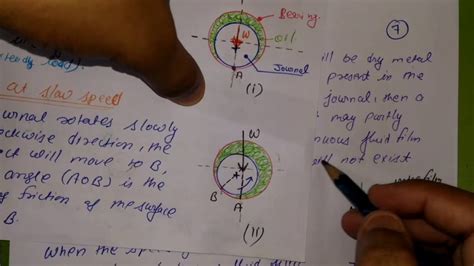 Bearing
W
oil
Journal
A
(i)
7
steady load)
at slow speed
rotates slowly
direction, the
ct will move to B,
angle (AOB) is the
friction of the surface
B.
W
B
A
(ii)
ill be dry metal
present in the
journal, then a
may partly
fluid film
not exist
when the